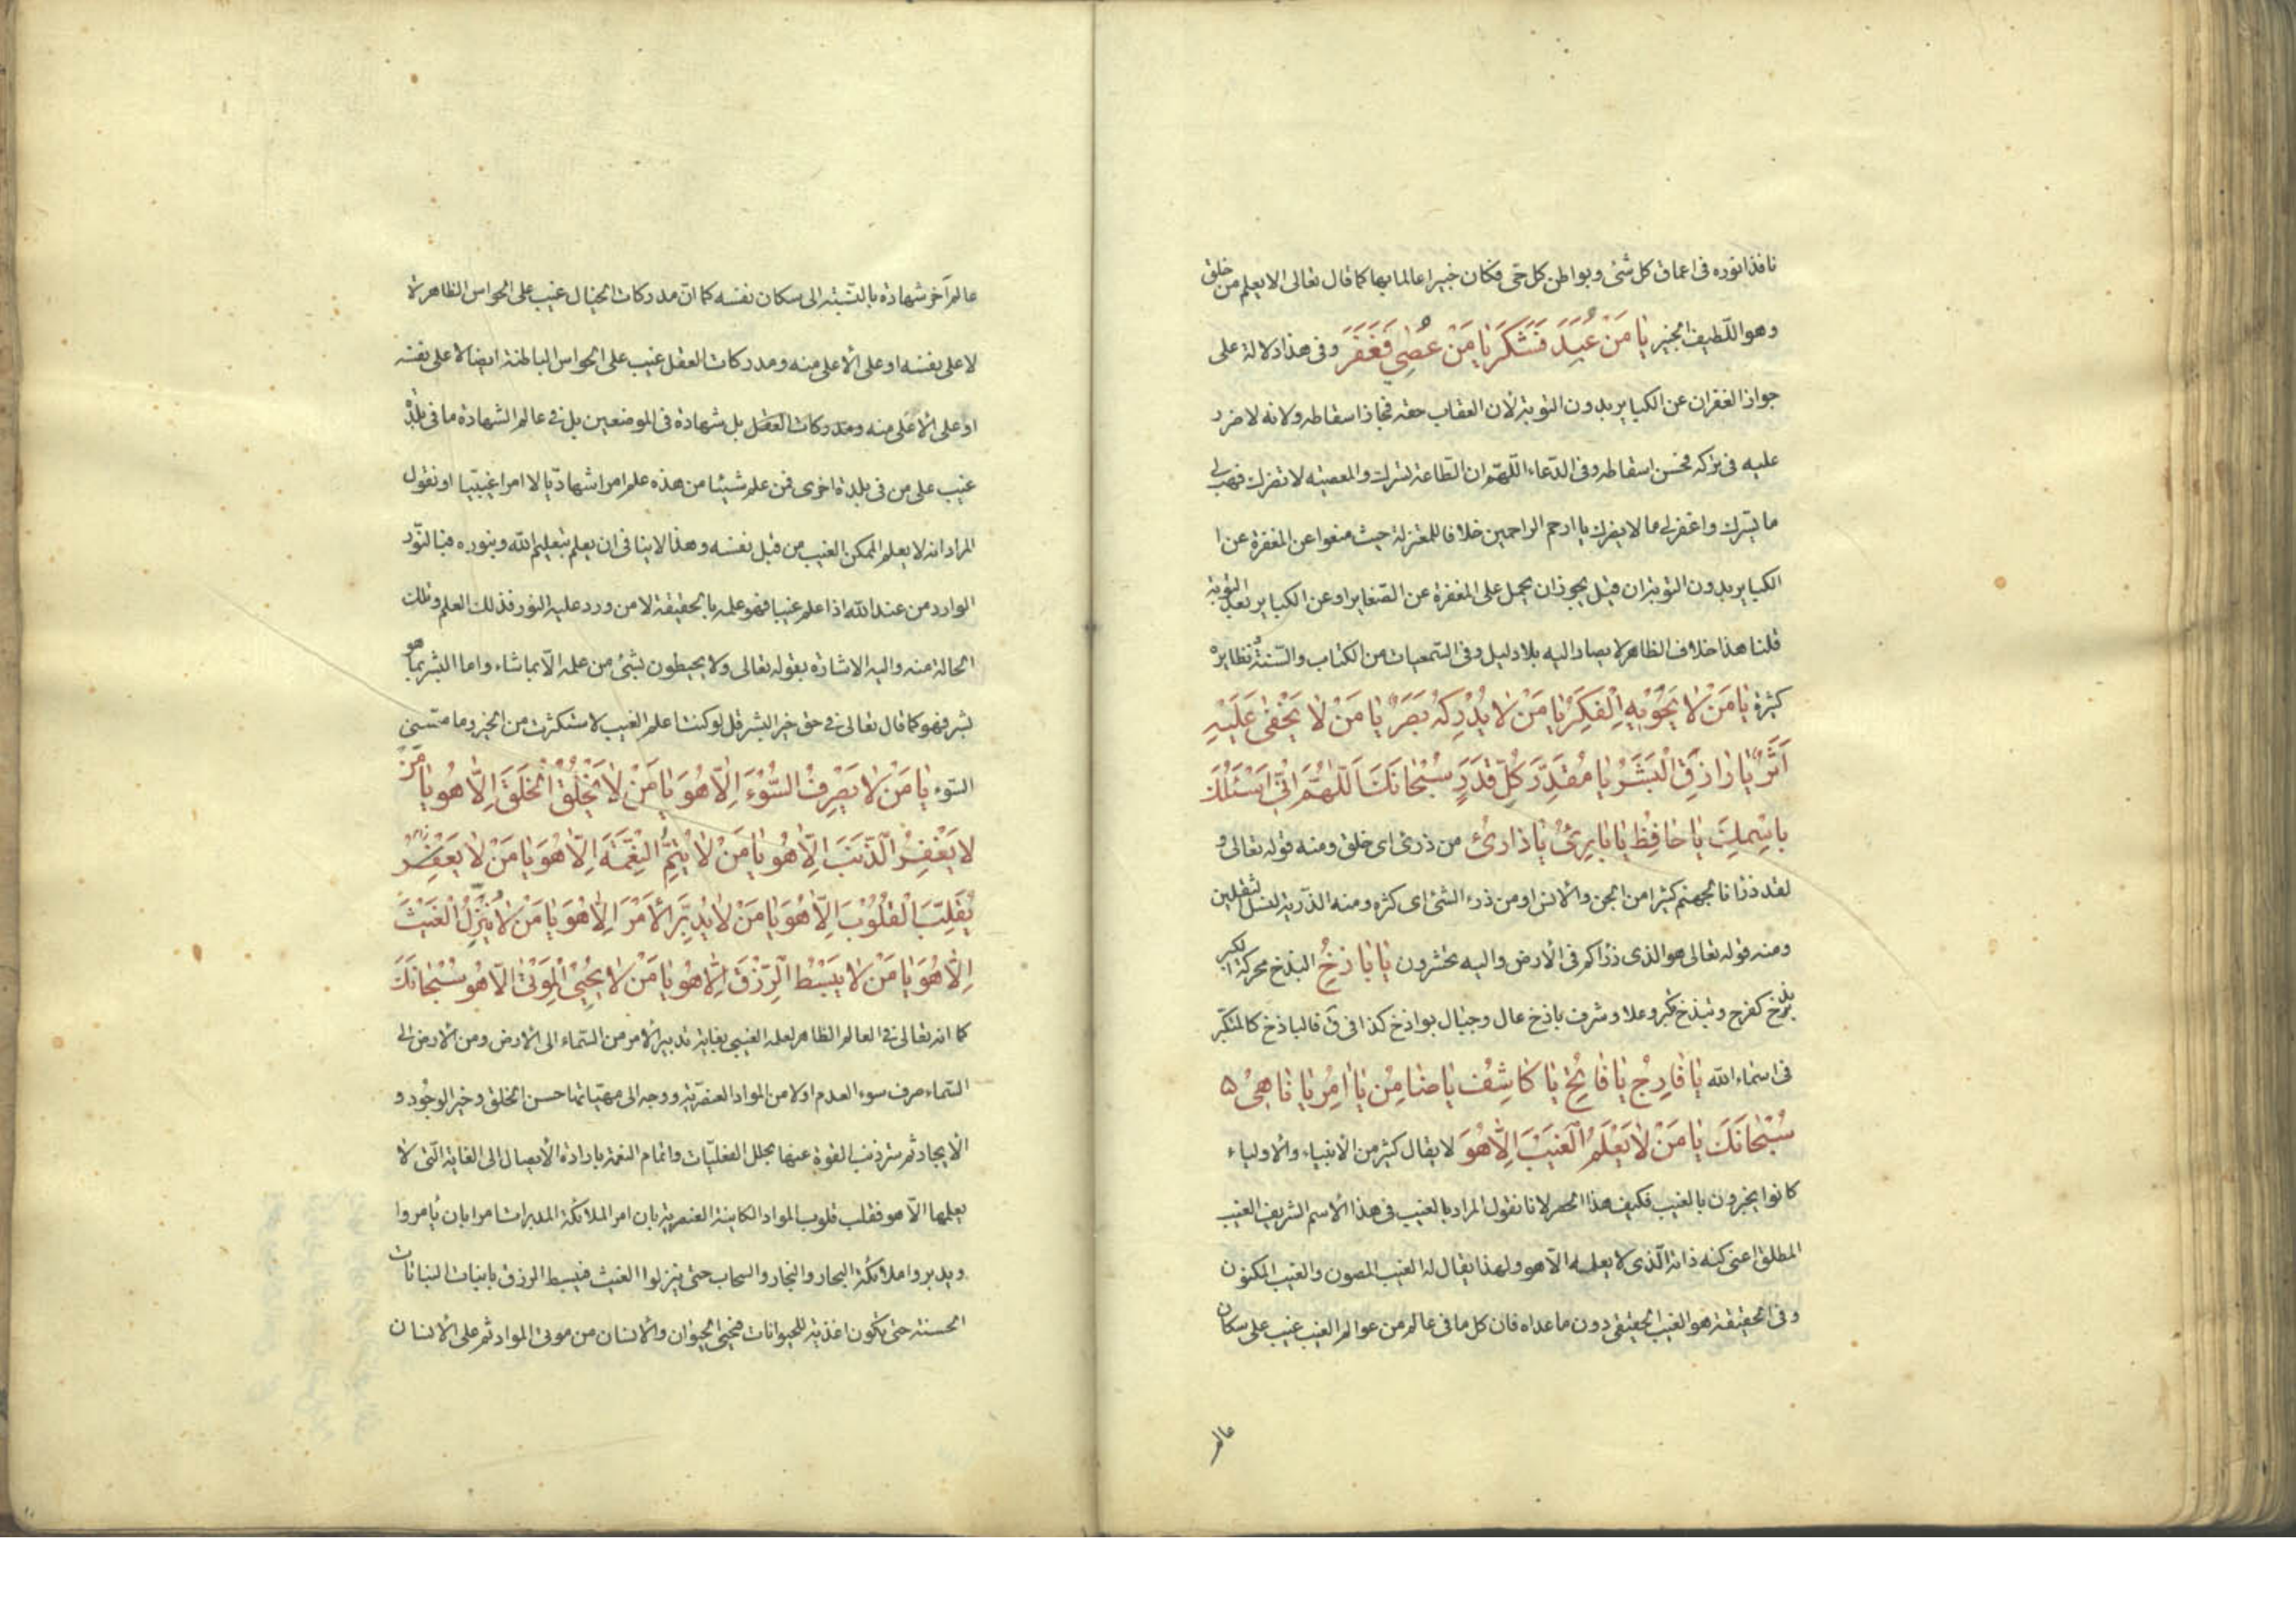 نافذا نوره فى اعماق كل شئ وبواطن كل حى فكان خبيرا عالما بها كما قال تعالى الا يعلم من خلق
وهو اللطيف الخبير يا مَنْ عُبِدَ فَشَكَرَ يا مَنْ عُصِىَ فَغَفَرَ وفى هذا دلالة على
جواز الغفران عن الكباير بدون التوبة لان العقاب حقه فجاز اسقاطه ولانه لا ضرر
عليه فى تركه فحسن اسقاطه وفى الدعاء اللهم ان الطاعة تسرك والمعصية لا تضرك فهب لى
ما يسرك واغفر لى ما لا يضرك يا ارحم الراحمين خلافا للمعتزلة حيث منعوا عن المغفرة عن ا
الكباير بدون التوبة ان قيل يجوز ان يحمل على المغفرة عن الصغاير او عن الكباير بعد التوبة
قلنا هذا خلاف الظاهر لا يصار اليه بلا دليل وفى السمعيات من الكتاب والسنة نظايره
كثرة يا مَنْ لا يَحْويهِ الْفِكَرُ يا مَنْ لا يُدْرِكُهُ بَصَرٌ يا مَنْ لا يَخْفى عَلَيْهِ
اَثَرٌ يا رازِقَ الْبَشَرِ يا مُقَدِّرَ كُلِّ قَدَرٍ سُبْحانَكَ اَللّهُمَّ اِنّى اَسْئَلُكَ
بِاسْمِكَ يا حافِظُ يا بارِئُ يا ذارِئُ من ذرئ اى خلق ومنه قوله تعالى و
لقد ذرانا لجهنم كثيرا من الجن والانس او من ذرء الشئ اى كثره ومنه الذرية لنسل الثقلين
ومنه قوله تعالى هو الذى ذراكم فى الارض واليه تحشرون يا باذِخُ البذخ محركة الكبر
بذخ كفرح وتبذخ تكبر وعلا وشرف باذخ عال وجبال بواذخ كذا فى ق فالباذخ كالمتكبر
فى اسماء الله يا فارِجُ يا فاتِحُ يا كاشِفُ يا ضامِنُ يا امِرُ يا ناهى ه
سُبْحانَكَ يا مَنْ لا يَعْلَمُ الْغَيْبَ اِلّا هُوَ لا يقال كثير من الانبياء والاولياء
كانوا يخبرون بالغيب فكيف هذا الحصر لانا نقول المراد بالغيب فى هذا الاسم الشريف الغيب
المطلق اعنى كنه ذاته الذى لا يعلمه الا هو ولهذا يقال له الغيب المصون والغيب المكنون
وفى الحقيقة هو الغيب الحقيقى دون ما عداه فان كل ما فى عالم من عوالم الغيب غيب على سكان
عالم
عالم آخر شهادة بالنسبة الى سكان نفسه كما ان مدركات الخيال غيب على الحواس الظاهرة
لا على نفسه او على الاعلى منه ومدركات العقل غيب على الحواس الباطنة ايضا لا على نفسه
او على الاعلى منه ومدركات العقل بل شهادة فى الموضعين بل فى عالم الشهادة ما فى بلدة
غيب على من فى بلدة اخرى فمن علم شيئا من هذه علم امرا شهاديا لا امرا غيبيا او نقول
المراد انه لا يعلم الممكن الغيب من قبل نفسه وهذا لا ينافى ان يعلم بتعليم الله وبنوره فبالنور
الوارد من عند الله اذا علم غيبا فهو علمه بالحقيقة لا من ورد عليه النور فذلك العلم وتلك
الحالة منه واليه الاشارة بقوله تعالى ولا يحيطون بشئ من علمه الا بما شاء واما البشر بما هو
بشر فهو كما قال تعالى فى حق خير البشر قل لو كنت اعلم الغيب لاستكثرت من الخير وما مسنى
السوء يا مَنْ لا يَصْرِفُ السُّوْءَ اِلّا هُوَ يا مَنْ لا يَخْلُقُ الْخَلْقَ اِلّا هُو يا مَنْ
لا يَغْفِرُ الذَّنْبَ اِلّا هُو يا مَنْ لا يُتِمُّ النِّعْمَةَ اِلّا هُوَ يا مَنْ لا يَغْفِرُ
يُقَلِّبُ الْقُلُوْبَ اِلّا هُوَ يا مَنْ لا يُدَبِّرُ الأَمْرَ اِلّا هُوَ يا مَنْ لا يُنَزِّلُ الْغَيْثَ
اِلّا هُوَ يا مَنْ لا يَبْسُطُ الرِّزْقَ اِلّا هُو يا مَنْ لا يُحْيِى الْمَوْتى اِلّا هُو سُبْحانَكَ
كما انه تعالى فى العالم الظاهر لعلمه الغيبى بغاية تدبير الامر من السماء الى الارض ومن الارض الى
السماء صرف سوء العدم اولا من المواد العنصرية ووجه الى مهياتها حسن الخلق وخير الوجود و
الايجاد ثم ستر ذنب القوة عنها بحلل الفعليات واتمام النعمة بارادة الايصال الى الغاية التى لا
يعلمها الا هو فقلب قلوب المواد الكاينة العنصرية بان امر الملائكة المدبرات امرا بان يأمروا
ويدبروا ملائكة البحار والبخار والسحاب حتى ينزلوا الغيث فيبسط الرزق بانبات النباتات
الحسنة حتى تكون اغذية للحيوانات فيحيى الحيوان والانسان من موتى المواد ثم على الانسان